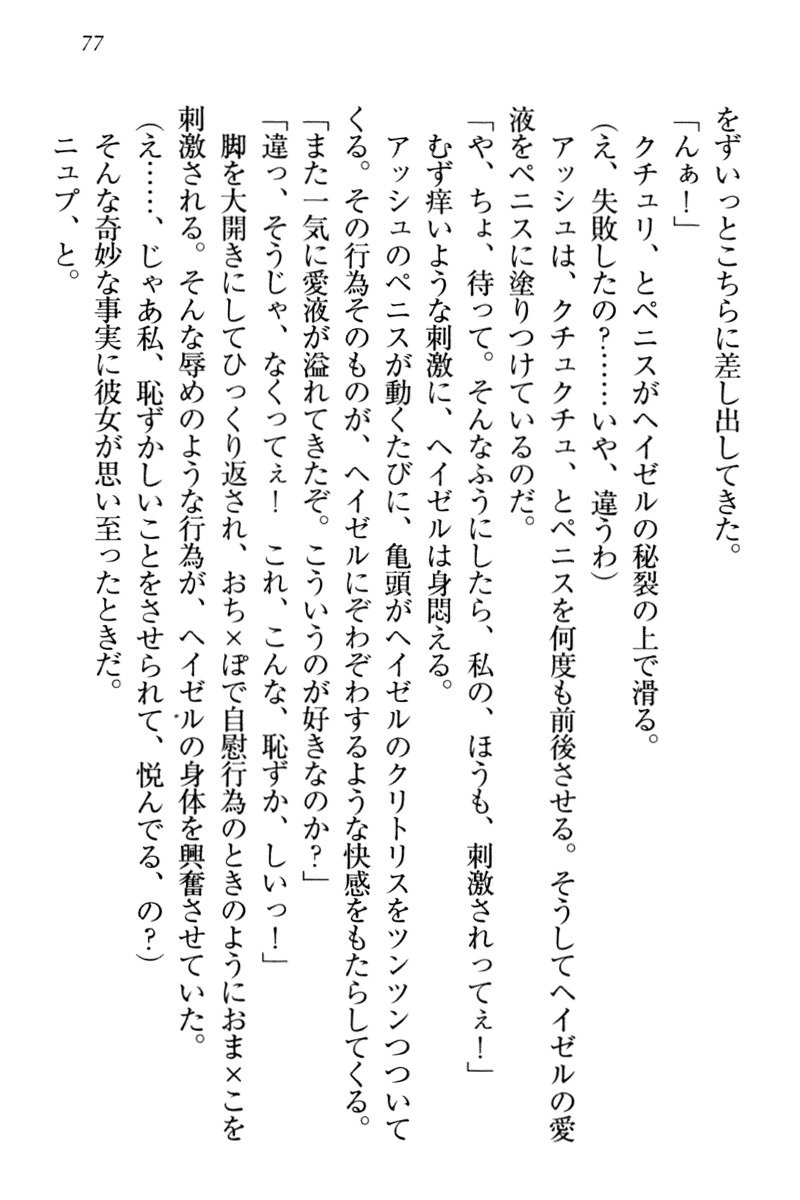 77
をずいっとこちらに差し出してきた。
「んぁ！」
　クチュリ、とペニスがヘイゼルの秘裂の上で滑る。
（え、失敗したの？……いや、違うわ）
　アッシュは、クチュクチュ、とペニスを何度も前後させる。そうしてヘイゼルの愛
液をペニスに塗りつけているのだ。
「や、ちょ、待って。そんなふうにしたら、私の、ほうも、刺激されってぇ！」
　むず痒いような刺激に、ヘイゼルは身悶える。
　アッシュのペニスが動くたびに、亀頭がヘイゼルのクリトリスをツンツンつついて
くる。その行為そのものが、ヘイゼルにぞわぞわするような快感をもたらしてくる。
「また一気に愛液が溢れてきたぞ。こういうのが好きなのか？」
「違っ、そうじゃ、なくってぇ！　これ、こんな、恥ずか、しいっ！」
　脚を大開きにしてひっくり返され、おち×ぽで自慰行為のときのようにおま×こを
刺激される。そんな辱めのような行為が、ヘイゼルの身体を興奮させていた。
（え……、じゃあ私、恥ずかしいことをさせられて、悦んでる、の？）
　そんな奇妙な事実に彼女が思い至ったときだ。
　ニュプ、と。